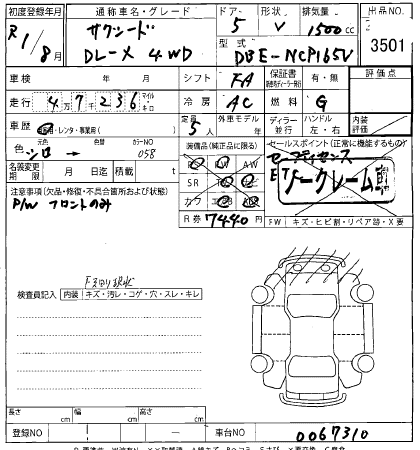 初度登録年月 通称車名・グレード ドア 形状 排気量 出品NO
R1/8月 サクシード 5 V 1500cc 3501
DL-X 4WD 型式 DBE-NCP165V
車検 年 月 シフト FA 保証書 有・無 評価点
走行 47236 マイル キロ 冷房 AC 燃料 G
車歴 自家用・レンタ・事業用( ) 定員 5人 外車モデル 年 ディーラー 並行 ハンドル 左・右 内装評価
色 元色 シロ → 色替 カラーNO 058 装備品(純正品に限る) セールスポイント(正常に機能するもの)
セーフティセンス
名義変更期限 月 日 積載 t AW
注意事項(欠品・修復・不具合箇所および状態) SR
P/W フロントのみ カワ
ノークレーム
R券 7440円 FW キズ・ヒビ割・リペア跡・X要
検査員記入 内装 キズ・汚レ・コゲ・穴・スレ・キレ
長さ cm 幅 cm 高さ cm
登録NO 車台NO 0067310